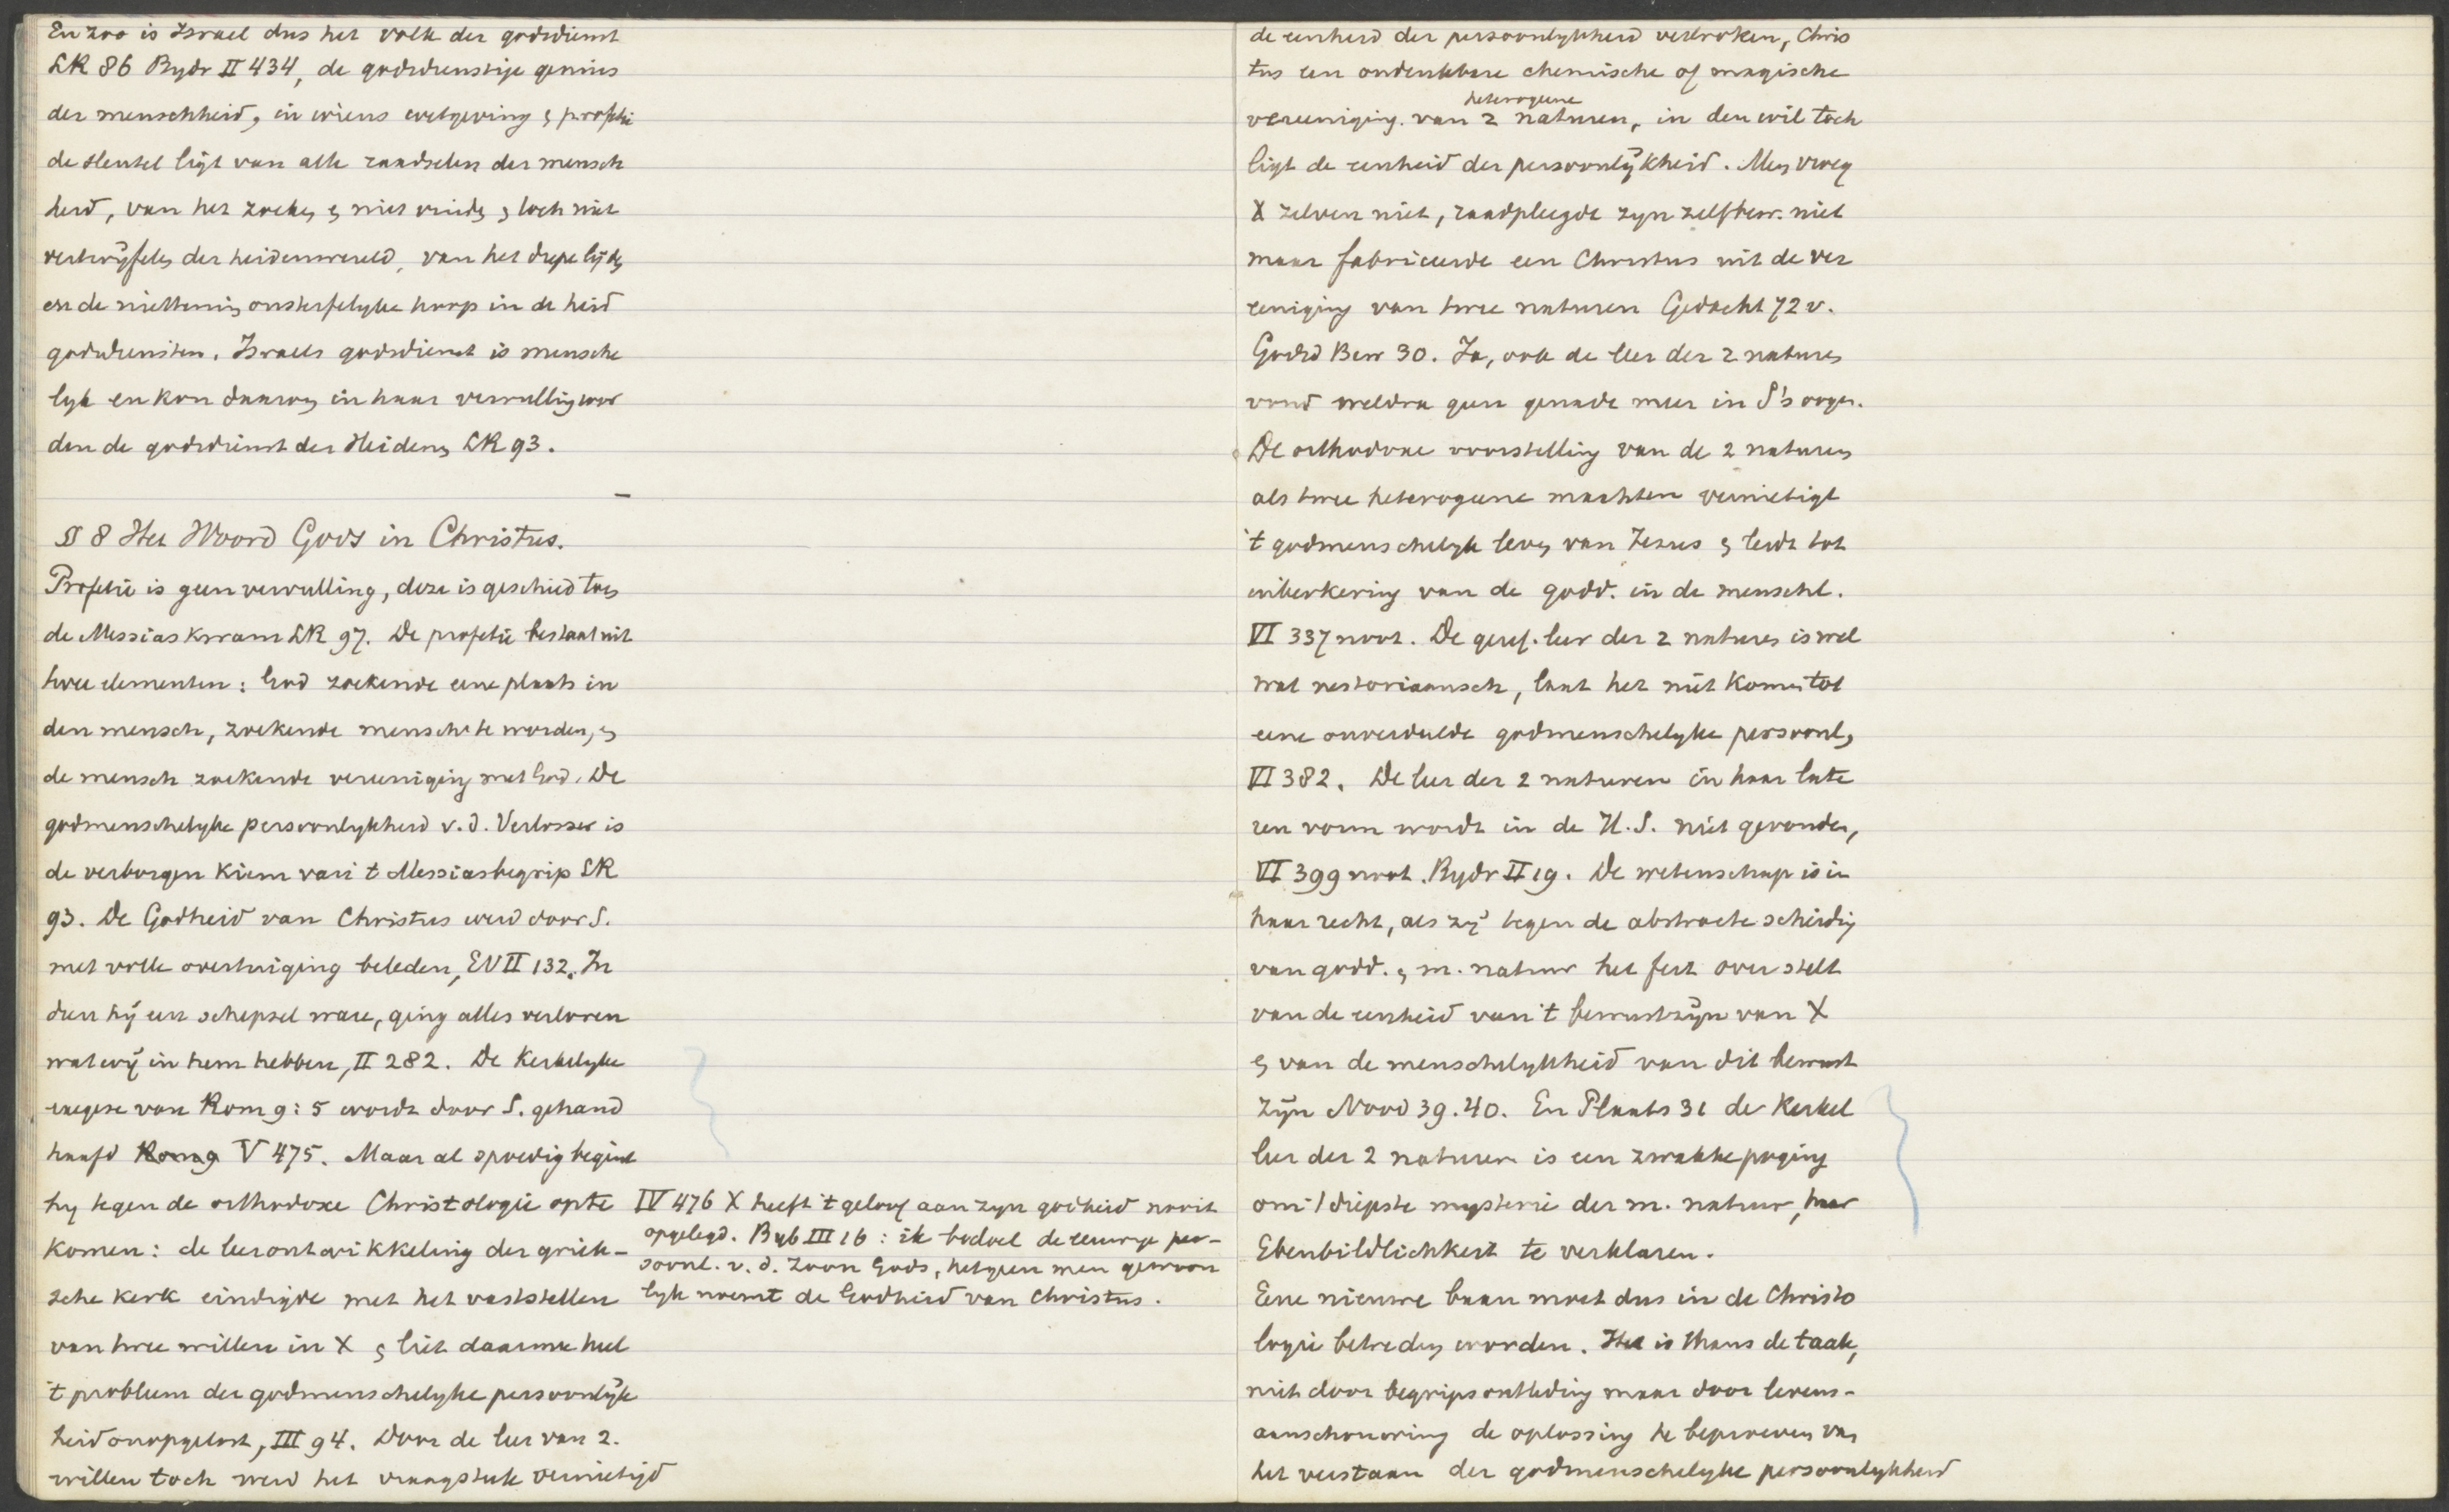 En zoo is Israel dus het volk der godsdienst
LR 86 Bydr II 434, de godsdienstige genius
der menschheid, in wiens wetgeving & profetie
de sleutel ligt van alle raadselen der mensch
heid, van het zoeken & niet vinden & toch niet
vertwijfelen der heidenwereld, van het diepe lijden
en de niettemin onsterfelyke hoop in de heid
godsdiensten. Israels godsdienst is mensche
lyk en kon daarom in haar vervulling wor
den de godsdienst der Heidenen LR 93.
§ 8 Het Woord Gods in Christus.
Profetie is geen vervulling, deze is geschied toen
de Messias kwam LR 97. De profetie bestaat uit
twee elementen: God zoekende eene plaats in
den mensch, zoekende mensch te worden, &
de mensch zoekende vereeniging met God. De
godmenschelyke persoonlykheid v.d. Verlosser is
de verborgen kiem van 't Messiasbegrip LR
93. De Godheid van Christus werd door S.
met volle overtuiging beleden, EV II 132. In
dien hij een schepsel ware, ging alles verloren
wat wij in hem hebben, II 282. De Kerkelyke
exegese van Rom 9:5 wordt door S. gehand
haafd Rom 9 V 475. Maar al spoedig begint
hy tegen de orthodoxe Christologie op te
komen: de leerontwikkeling der griek-
sche kerk eindigde met het vaststellen
van twee willen in X & liet daarmee heel
't probleem der godmenschelyke persoonlijk
heid onopgelost, III 94. Door de leer van 2.
willen toch werd het vraagstuk vernietigd
IV 476 X heeft 't geloof aan zyn godheid nooit
opgelegd. Byb III 16: ik bedoel de eeuwige per-
soonl. v.d. Zoon Gods, hetgeen men gewoon
lyk noemt de Godheid van Christus.
de eenheid der persoonlykheid verbroken, Chris
tus een ondenkbare chemische of magische
heterogeene
vereeniging van 2 naturen, in den wil toch
ligt de eenheid der persoonlijkheid. Men vroeg
X zelven niet, raadpleegde zyn zelfbew. niet
maar fabriceerde een Christus uit de ver
eeniging van twee naturen Gedacht 72 v.
Godsd Bew 30. Ja, ook de leer der 2 naturen
vond weldra geen genade meer in S's oogen.
De orthodoxe voorstelling van de 2 naturen
als twee heterogeene machten vernietigt
't godmenschelyk leven van Jezus & leidt tot
uiteenkering van de godd. in de menschl.
VI 337 noot. De geref. leer der 2 naturen is wel
wat nestoriaansch, laat het niet komen tot
eene onverdeelde godmenschelyke persoonl,
VI 382. De leer der 2 naturen in haar late
ren vorm wordt in de H.S. niet gevonden,
VI 399 noot. Bydr II 19. De wetenschap is in
haar recht, als zij tegen de abstracte scheiding
van godd. & m. natuur het feit overstelt
van de eenheid van 't bewustzijn van X
& van de menschelykheid van dit bewust
zijn Nood 39.40. En Plaats 31 de Kerkel
leer der 2 naturen is een zwakke poging
om 't diepste mysterie der m. natuur, haar
Ebenbildlichkeit te verklaren.
Eene nieuwe baan moet dus in de Christo
logie betreden worden. Het is thans de taak,
niet door begripsontleding maar door levens-
aanschouwing de oplossing te beproeven van
het verstaan der godmenschelyke persoonlykheid